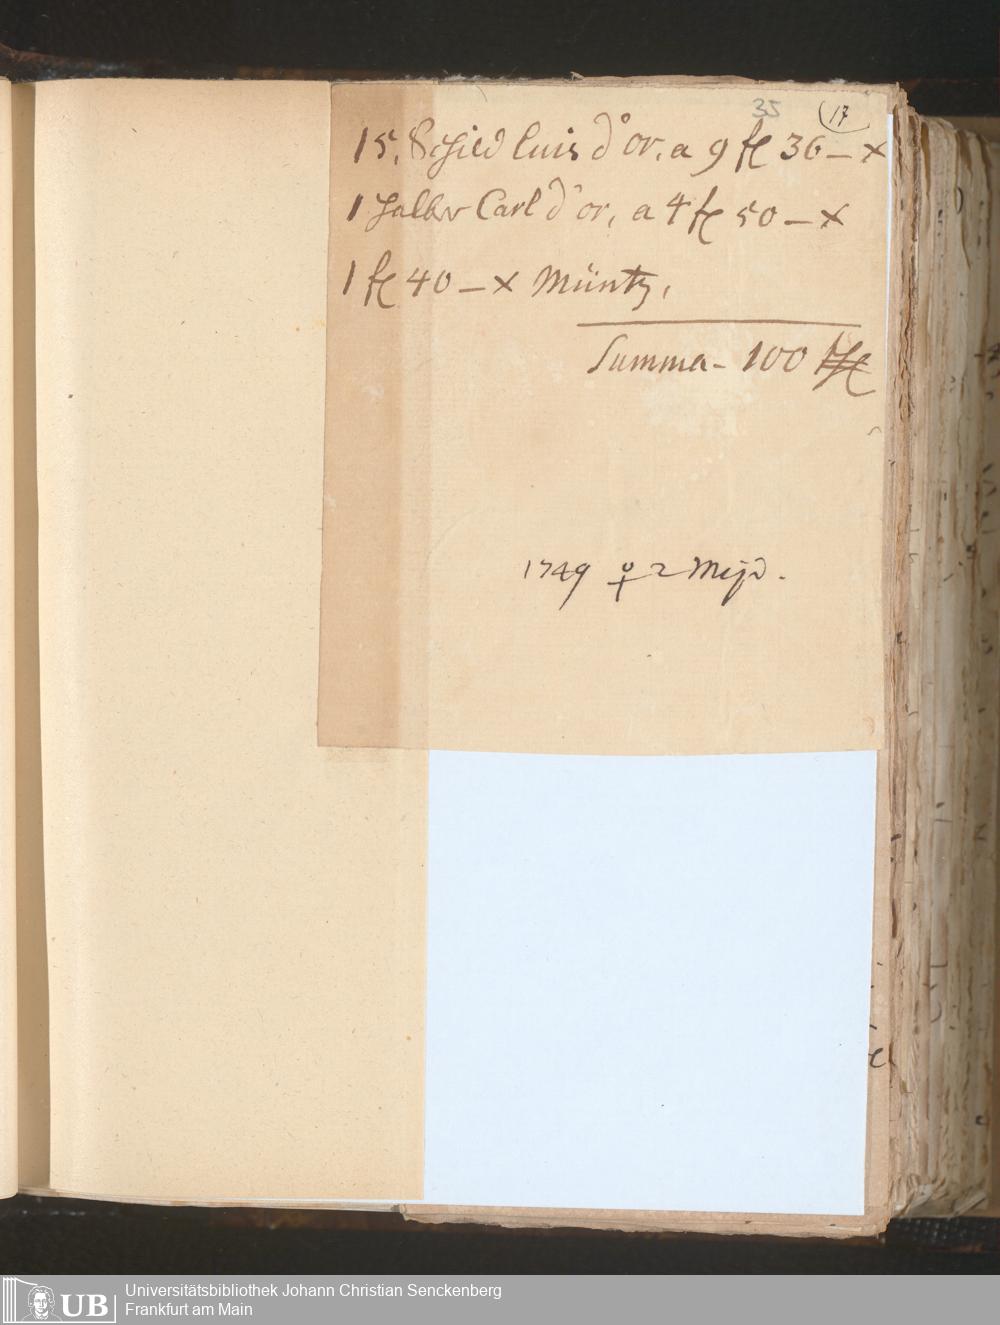 35
17
15. Schild luis d'or, a 9 fl 36 – x
1 halber Carl d'or, a 4 fl 50 – x
1 fl 40 – x Müntz,
Summa – 100 fl
1749 ♀ 2 Maji.
Universitätsbibliothek Johann Christian Senckenberg
Frankfurt am Main
UB